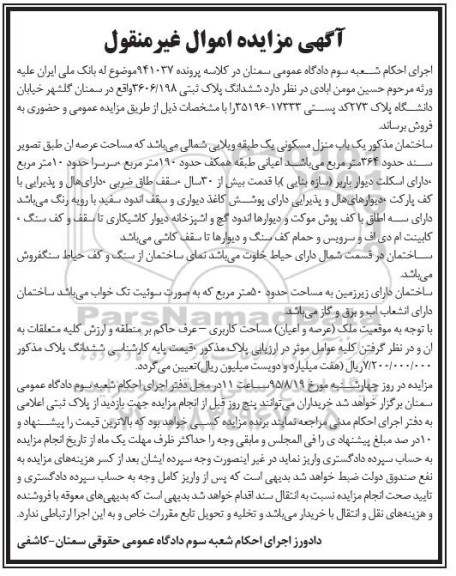 آگهی مزایده اموال غیرمنقول
اجرای احکام شعبه سوم دادگاه عمومی سمنان در کلاسه پرونده ۹۴۱۰۳۷موضوع له بانک ملی ایران علیه
ورثه مرحوم حسین مومن ابادی در نظر دارد ششدانگ پلاک ثبتی ۳۶۰۶/۱۹۸واقع در سمنان گلشهر خیابان
دانشگاه پلاک ۲۷۳کد پستی ۱۷۲۳۳-۳۵۱۹۶را با مشخصات ذیل از طریق مزایده عمومی و حضوری به
فروش برساند.
ساختمان مذکور یک باب منزل مسکونی یک طبقه ویلایی شمالی می‌باشد که مساحت عرصه ان طبق تصویر
سند حدود ۳۶۴متر مربع می‌باشد اعیانی طبقه همکف حدود ۱۹۰متر مربع ،سرسرا حدود ۱۰متر مربع
،دارای اسکلت دیوار باربر (سازه بنایی )،با قدمت بیش از ۳۰سال ،سقف طاق ضربی ،دارای‌هال و پذیرایی با
کف پارکت ،دیوارهای‌هال و پذیرایی دارای پوشش کاغذ دیواری و سقف اندود سفید با رویه رنگ می‌باشد
دارای سه اطاق با کف پوش موکت و دیوارها اندود گچ و اشپزخانه دیوار کاشیکاری تا سقف و کف سنگ ،
کابینت ام دی اف و سرویس و حمام کف سنگ و دیوارها تا سقف کاشی می‌باشد
ساختمان در قسمت شمال دارای حیاط خلوت می‌باشد نمای ساختمان از سنگ و کف حیاط سنگفروش
می‌باشد.
ساختمان دارای زیرزمین به مساحت حدود ۵۰متر مربع که به صورت سوئیت تک خواب می‌باشد ساختمان
دارای انشعاب اب و برق و گاز می‌باشد.
با توجه به موقعیت ملک (عرصه و اعیان) مساحت کاربری – عرف حاکم بر منطقه و ارزش کلیه متعلقات به
ان و در نظر گرفتن کلیه عوامل موثر در ارزیابی پلاک مذکور ،قیمت پایه کارشناسی ششدانگ پلاک مذکور
۷/۲۰۰/۰۰۰/۰۰۰ریال (هفت میلیارد و دویست میلیون ریال)تعیین می‌گردد.
مزایده در روز چهارشنبه مورخ ۹۵/۸/۱۹ساعت ۱۱در محل دفتر اجرای احکام شعبه سوم دادگاه عمومی
سمنان برگزار خواهد شد خریداران می‌توانند پنج روز قبل از انجام مزایده جهت بازدید از پلاک ثبتی اعلامی
به دفتر اجرای احکام مدنی مراجعه نمایند برنده مزایده کسی خواهد بود که بالاترین قیمت را پیشنهاد و
۱۰در صد مبلغ پیشنهادی را فی المجلس و مابقی وجه را حداکثر ظرف مهلت یک ماه از تاریخ انجام مزایده
به حساب سپرده دادگستری واریز نماید در غیر اینصورت وجه سپرده ایشان بعد از کسر هزینه‌های مزایده به
نفع صندوق دولت ضبط خواهد شد بدیهی است که پس از واریز کامل وجه به حساب سپرده دادگستری و
تایید صحت انجام مزایده نسبت به انتقال سند اقدام خواهد شد بدیهی است که بدیهی‌های معوقه با فروشنده
و هزینه‌های نقل و انتقال با خریدار می‌باشد و تخلیه و تحویل تابع مقررات خاص و به این اجرا ارتباطی ندارد.
دادورز اجرای احکام شعبه سوم دادگاه عمومی حقوقی سمنان-کاشفی